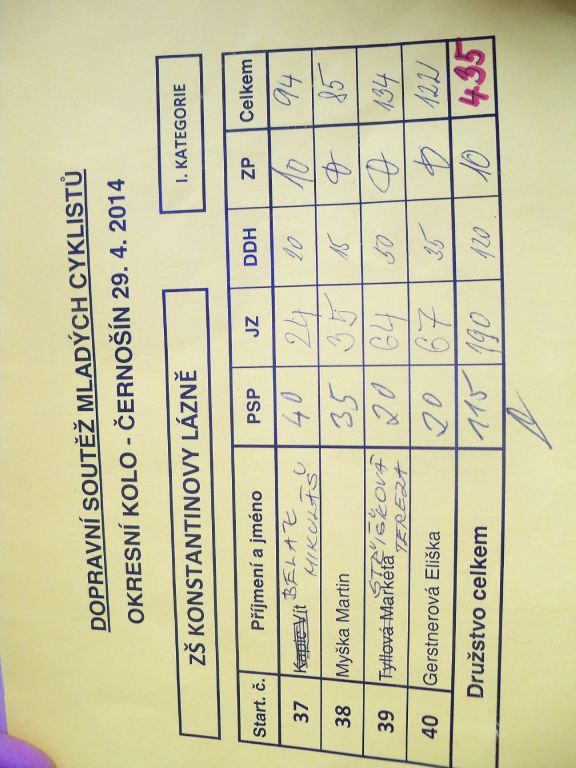 DOPRAVNÍ SOUTĚŽ MLADÝCH CYKLISTŮ
OKRESNÍ KOLO - ČERNOŠÍN 29. 4. 2014
ZŠ KONSTANTINOVY LÁZNĚ I. KATEGORIE
Start. č. Příjmení a jméno PSP JZ DDH ZP Celkem
37 Kapic Vít BELAZ MIKULÁŠ 40 24 20 10 94
38 Myška Martin 35 35 15 0 85
39 Tyllová Markéta TEREZA 20 64 50 0 134
40 Gerstnerová Eliška 20 67 35 0 122
Družstvo celkem 115 190 120 10 435